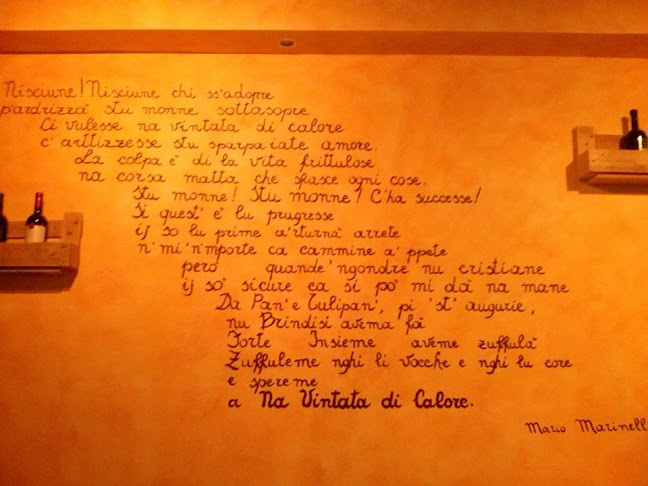 Nisciune! Nisciune chi ss'adopre
p'ardrizzà stu monne sottasopre
Ci vulesse na vintata di calore
c' arttizzesse stu sparpaiate amore.
La colpa è di la vita frittulose
na corsa matta che sfasce ogni cose.
Stu monne! Stu monne! C'ha successe!
Si quest' è lu prugresse
ij so lu prime a'rturnà arrete
n' mi 'n'mporte ca cammine a' ppete
però quande 'ngondre nu cristiane
ij so' sicure ca si pò mi dà na mane
Da Pan' e Tulipan', pi 'st' augurie,
nu Brindisi avema fà
Forte Insieme aveme zuffulà
Zuffuleme nghi li vocche e nghi lu core
e spereme
a Na Vintata di Calore.
Mario Marinell